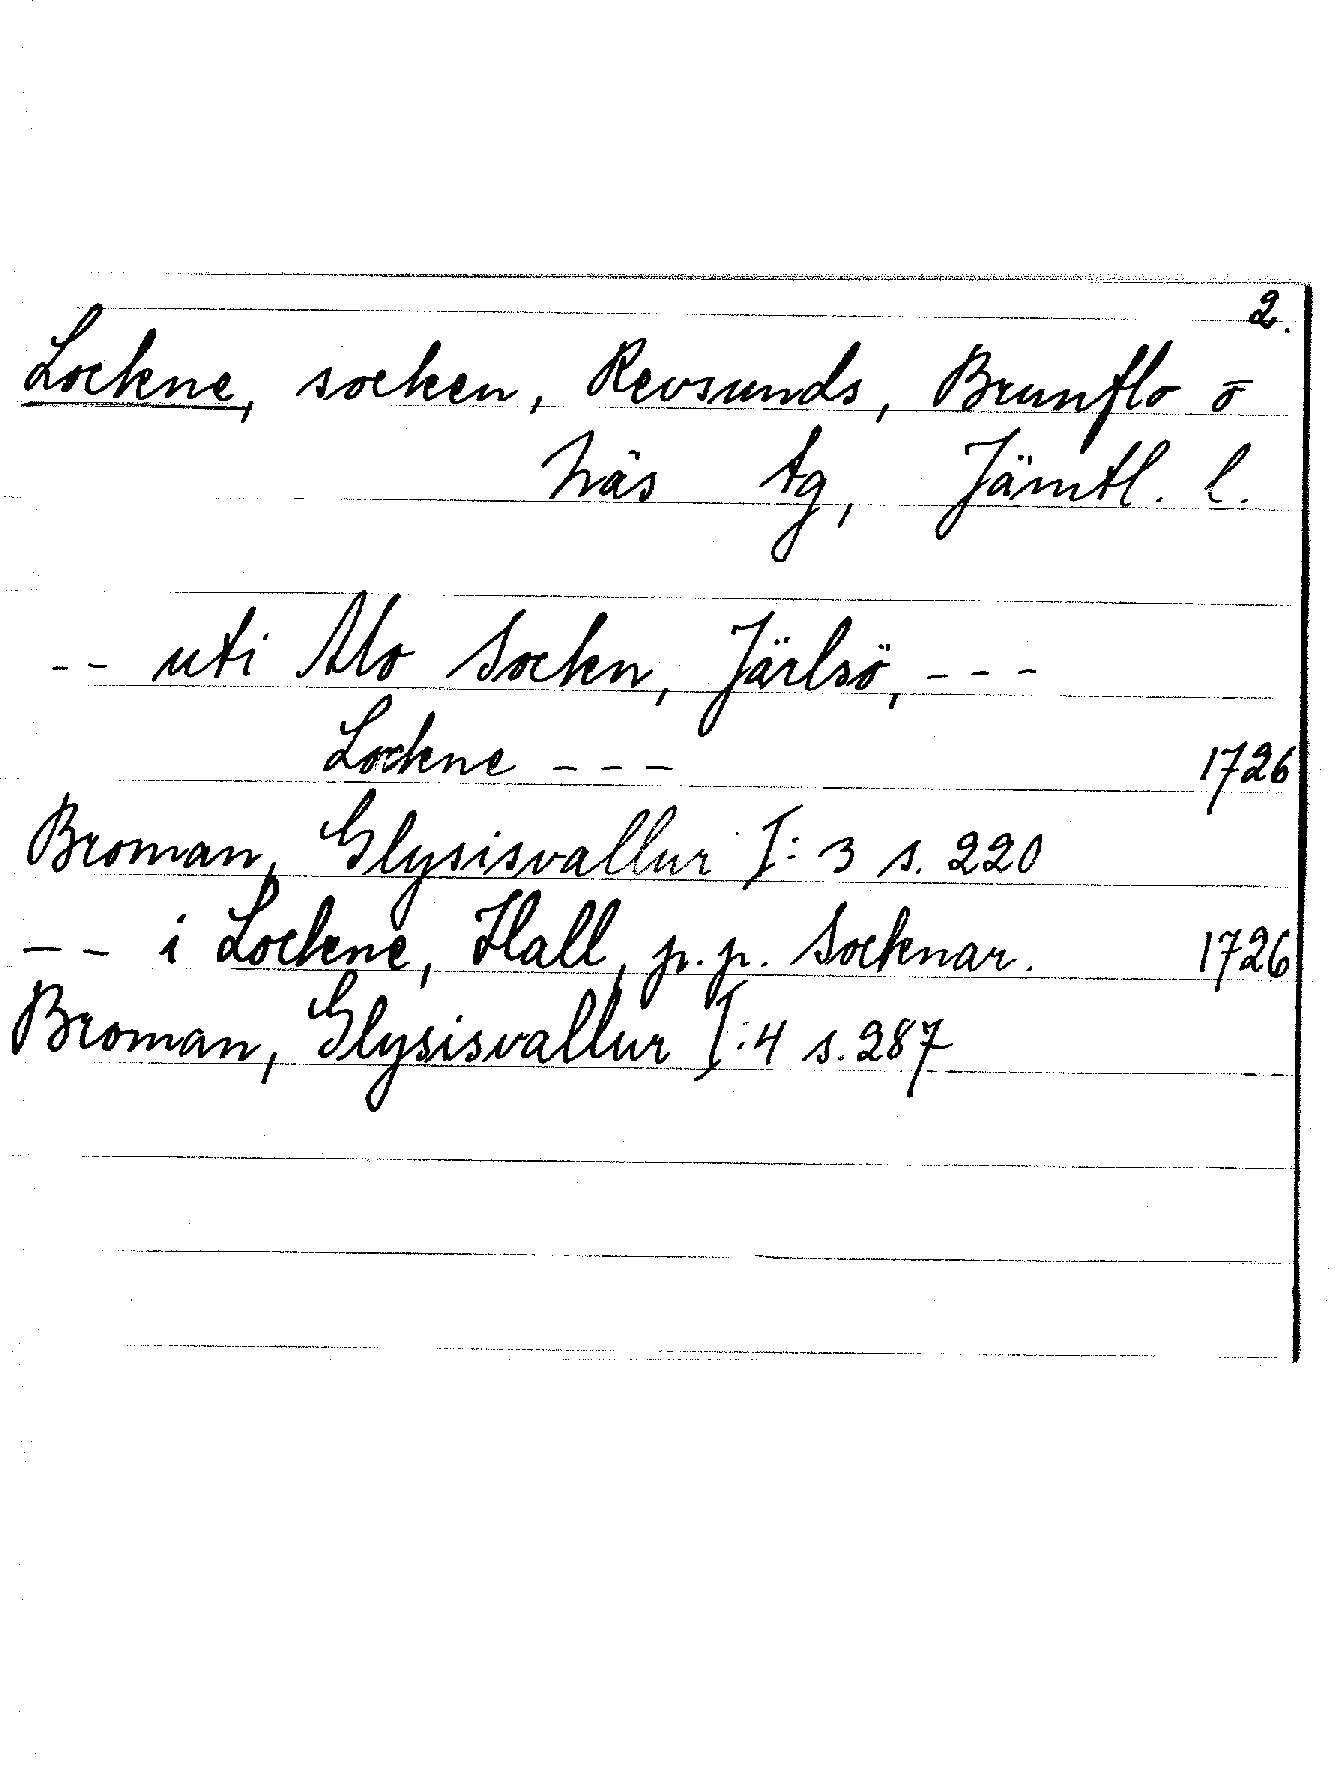 2.
Lockne, socken, Revsunds, Brunflo o
Näs tg, Jämtl. l.
-- uti Mo Sockn, Järlsö, ---
Lockne --- 1726
Broman, Glysisvallur I: 3 s. 220
-- i Lockne, Hall, p.p. Socknar. 1726
Broman, Glysisvallur I:4 s. 287